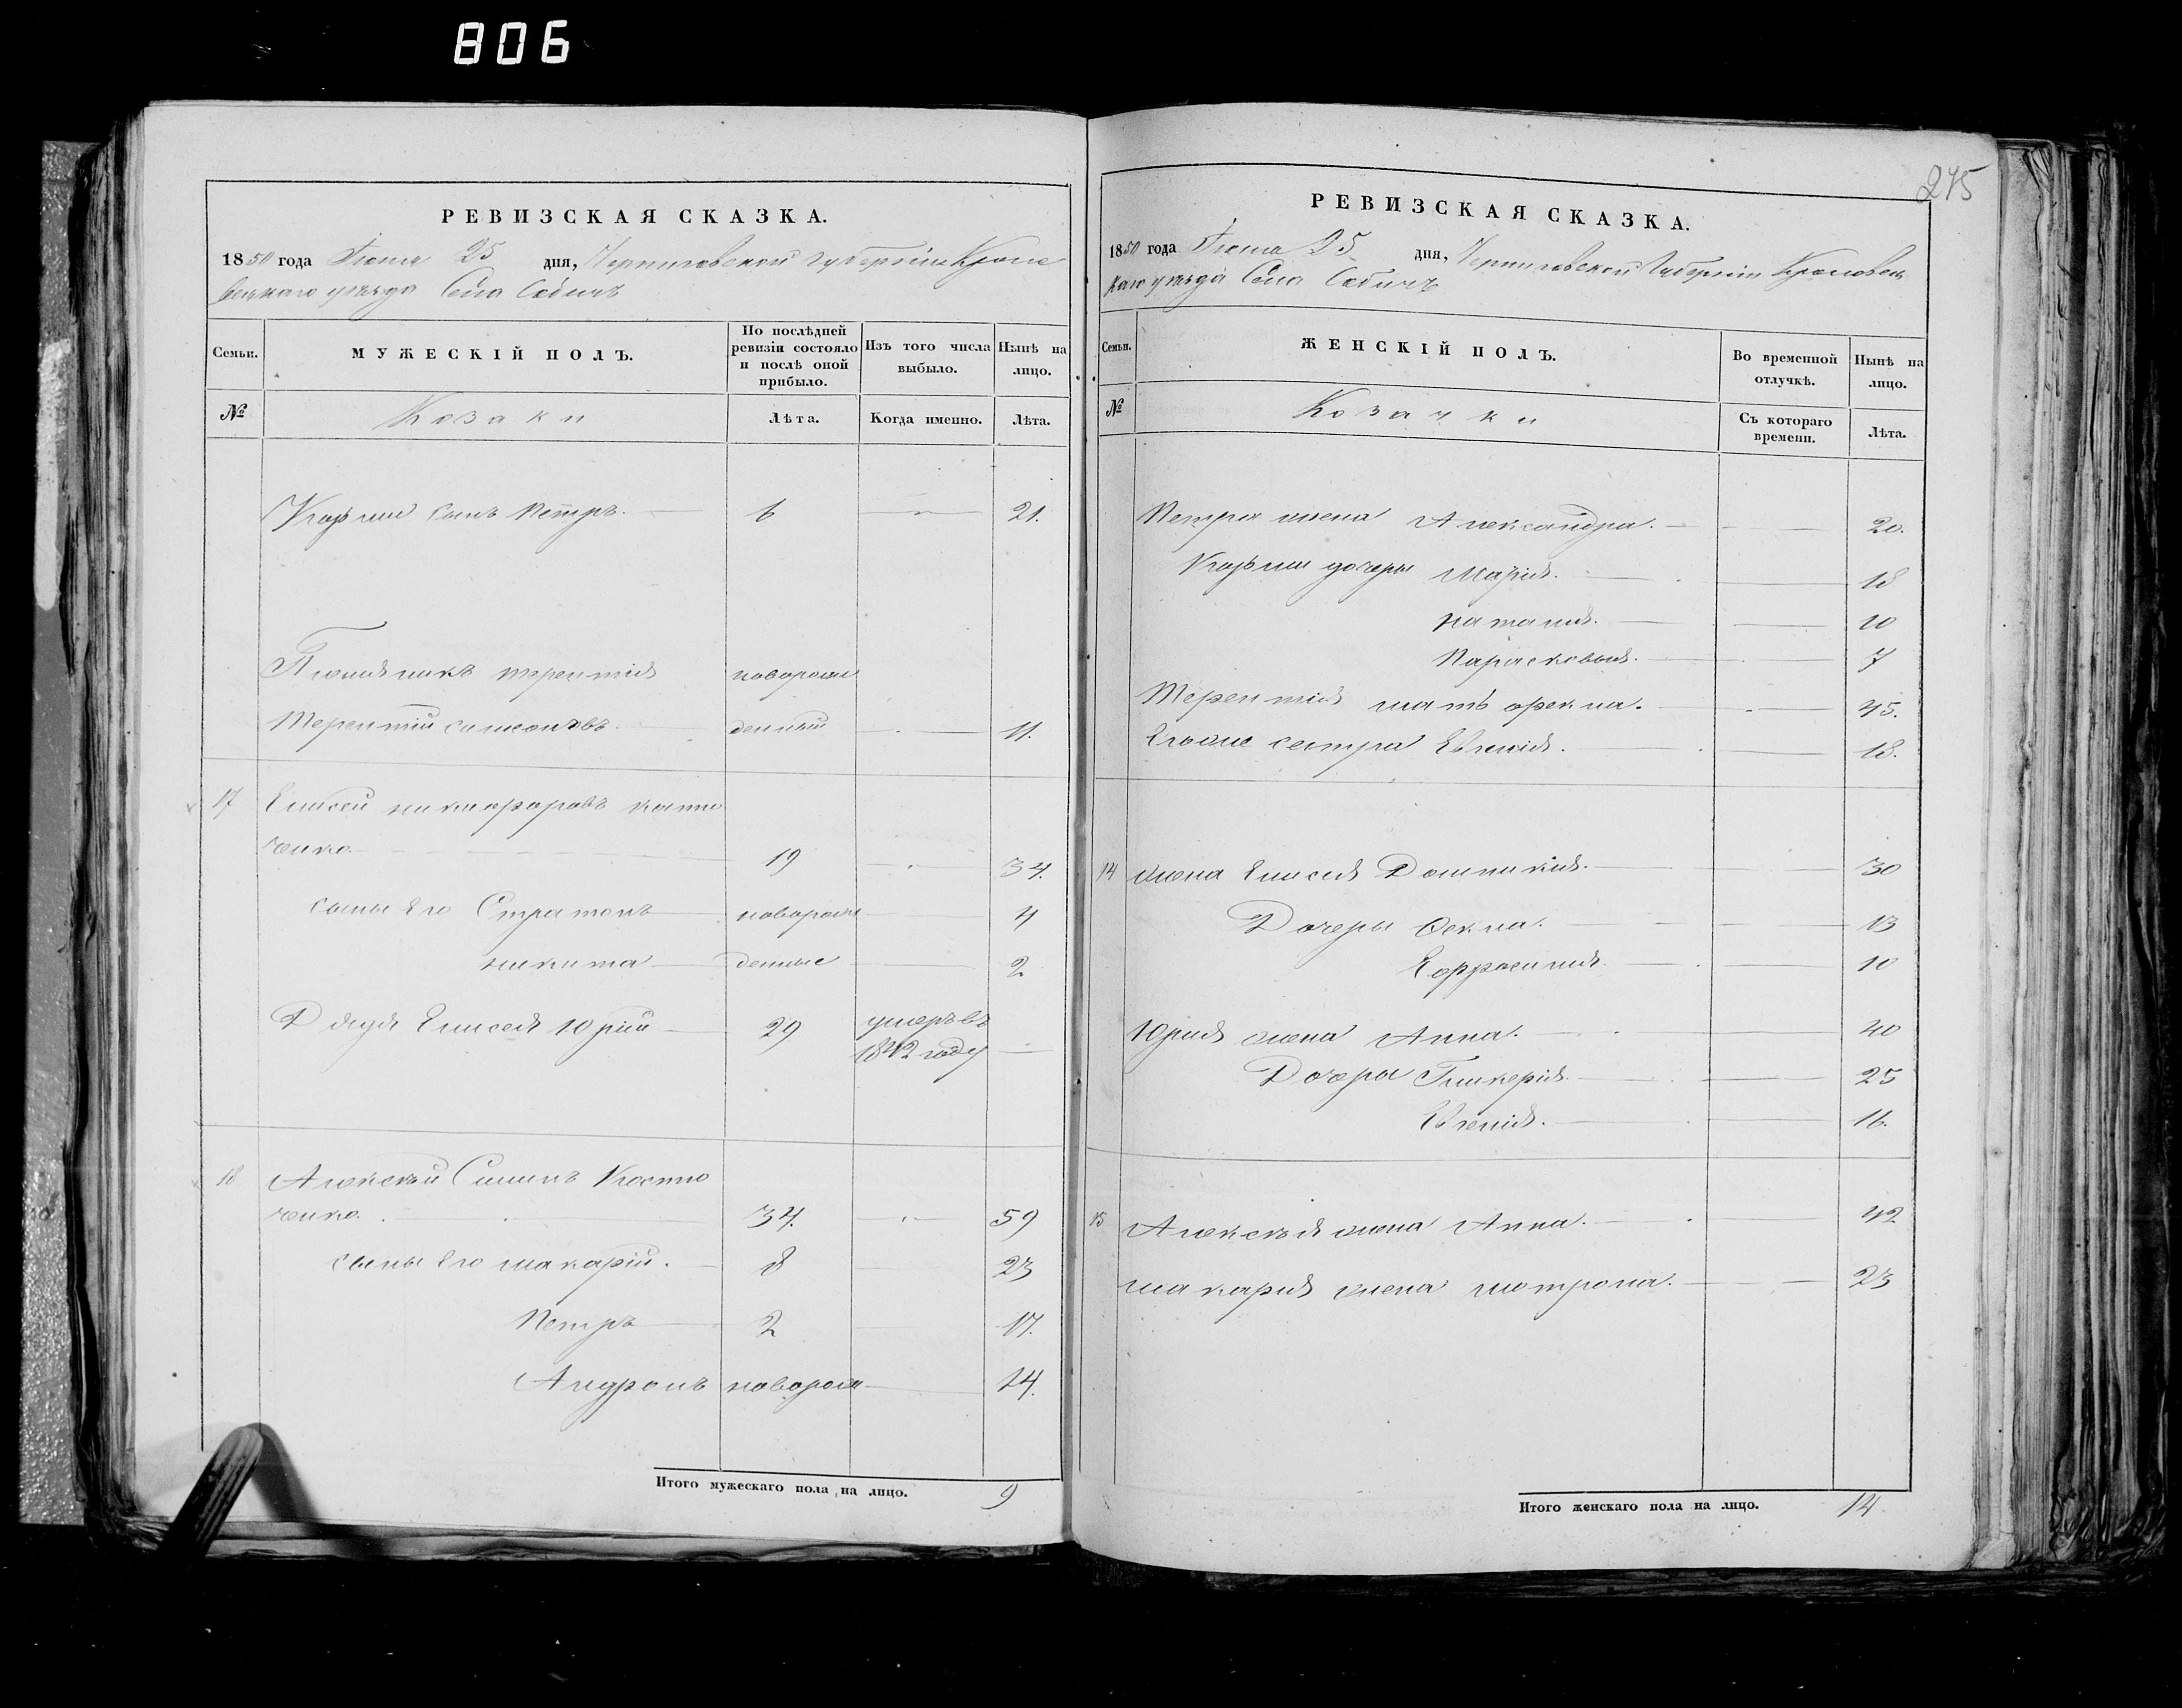 806
РЕВИЗСКАЯ СКАЗКА.
1850 года Июня 25 дня, Черниговской губернии Кроле
вецкаго уезда Села Собичъ
Семьи.
МУЖЕСКІЙ ПОЛЪ.
По послѣдней ревизіи состояло и послѣ оной прибыло.
Изъ того числа выбыло.
Нынѣ на лицо.
№
Козаки
Лѣта.
Когда именно.
Лѣта.
сынъ Петръ. 6 21.
Племяникъ терентія новорож
Терентій денный 11.
17 Елисей никифоровъ кости
ченко 19 34.
сыны Его Стратонъ новорож 4
никита денные 2
Дядя Елисея Юрій 29 умеръ въ
1842 году
18 Алексѣй Костю
ченко. 34. 59
сыны Его макарій. 8 23
Петръ 2 17.
Андронъ новорож 14.
Итого мужескаго пола на лицо. 9
245
РЕВИЗСКАЯ СКАЗКА.
1850 года Июня 25 дня, Черниговской Губерніи Кролевец
каго уезда Села Собичъ
Семьи.
ЖЕНСКІЙ ПОЛЪ.
Во временной отлучкѣ.
Нынѣ на лицо.
№
Козачки
Съ котораго времени.
Лѣта.
Петра жена Александра. 20.
дочери Марія. 18
наталія. 10
Парасковья. 7
Терентія мать Фекла. 45.
Его же сестра Евгенія. 18.
14 жена Елисея Домникія. 30
Дочери Фекла. 13
Ефросинія. 10
Юрія жена Анна. 40
Дочери Гликерія. 25
Евгенія. 16.
15 Алексѣя жена Анна. 42
макарія жена мотрона. 23
Итого женскаго пола на лицо. 14